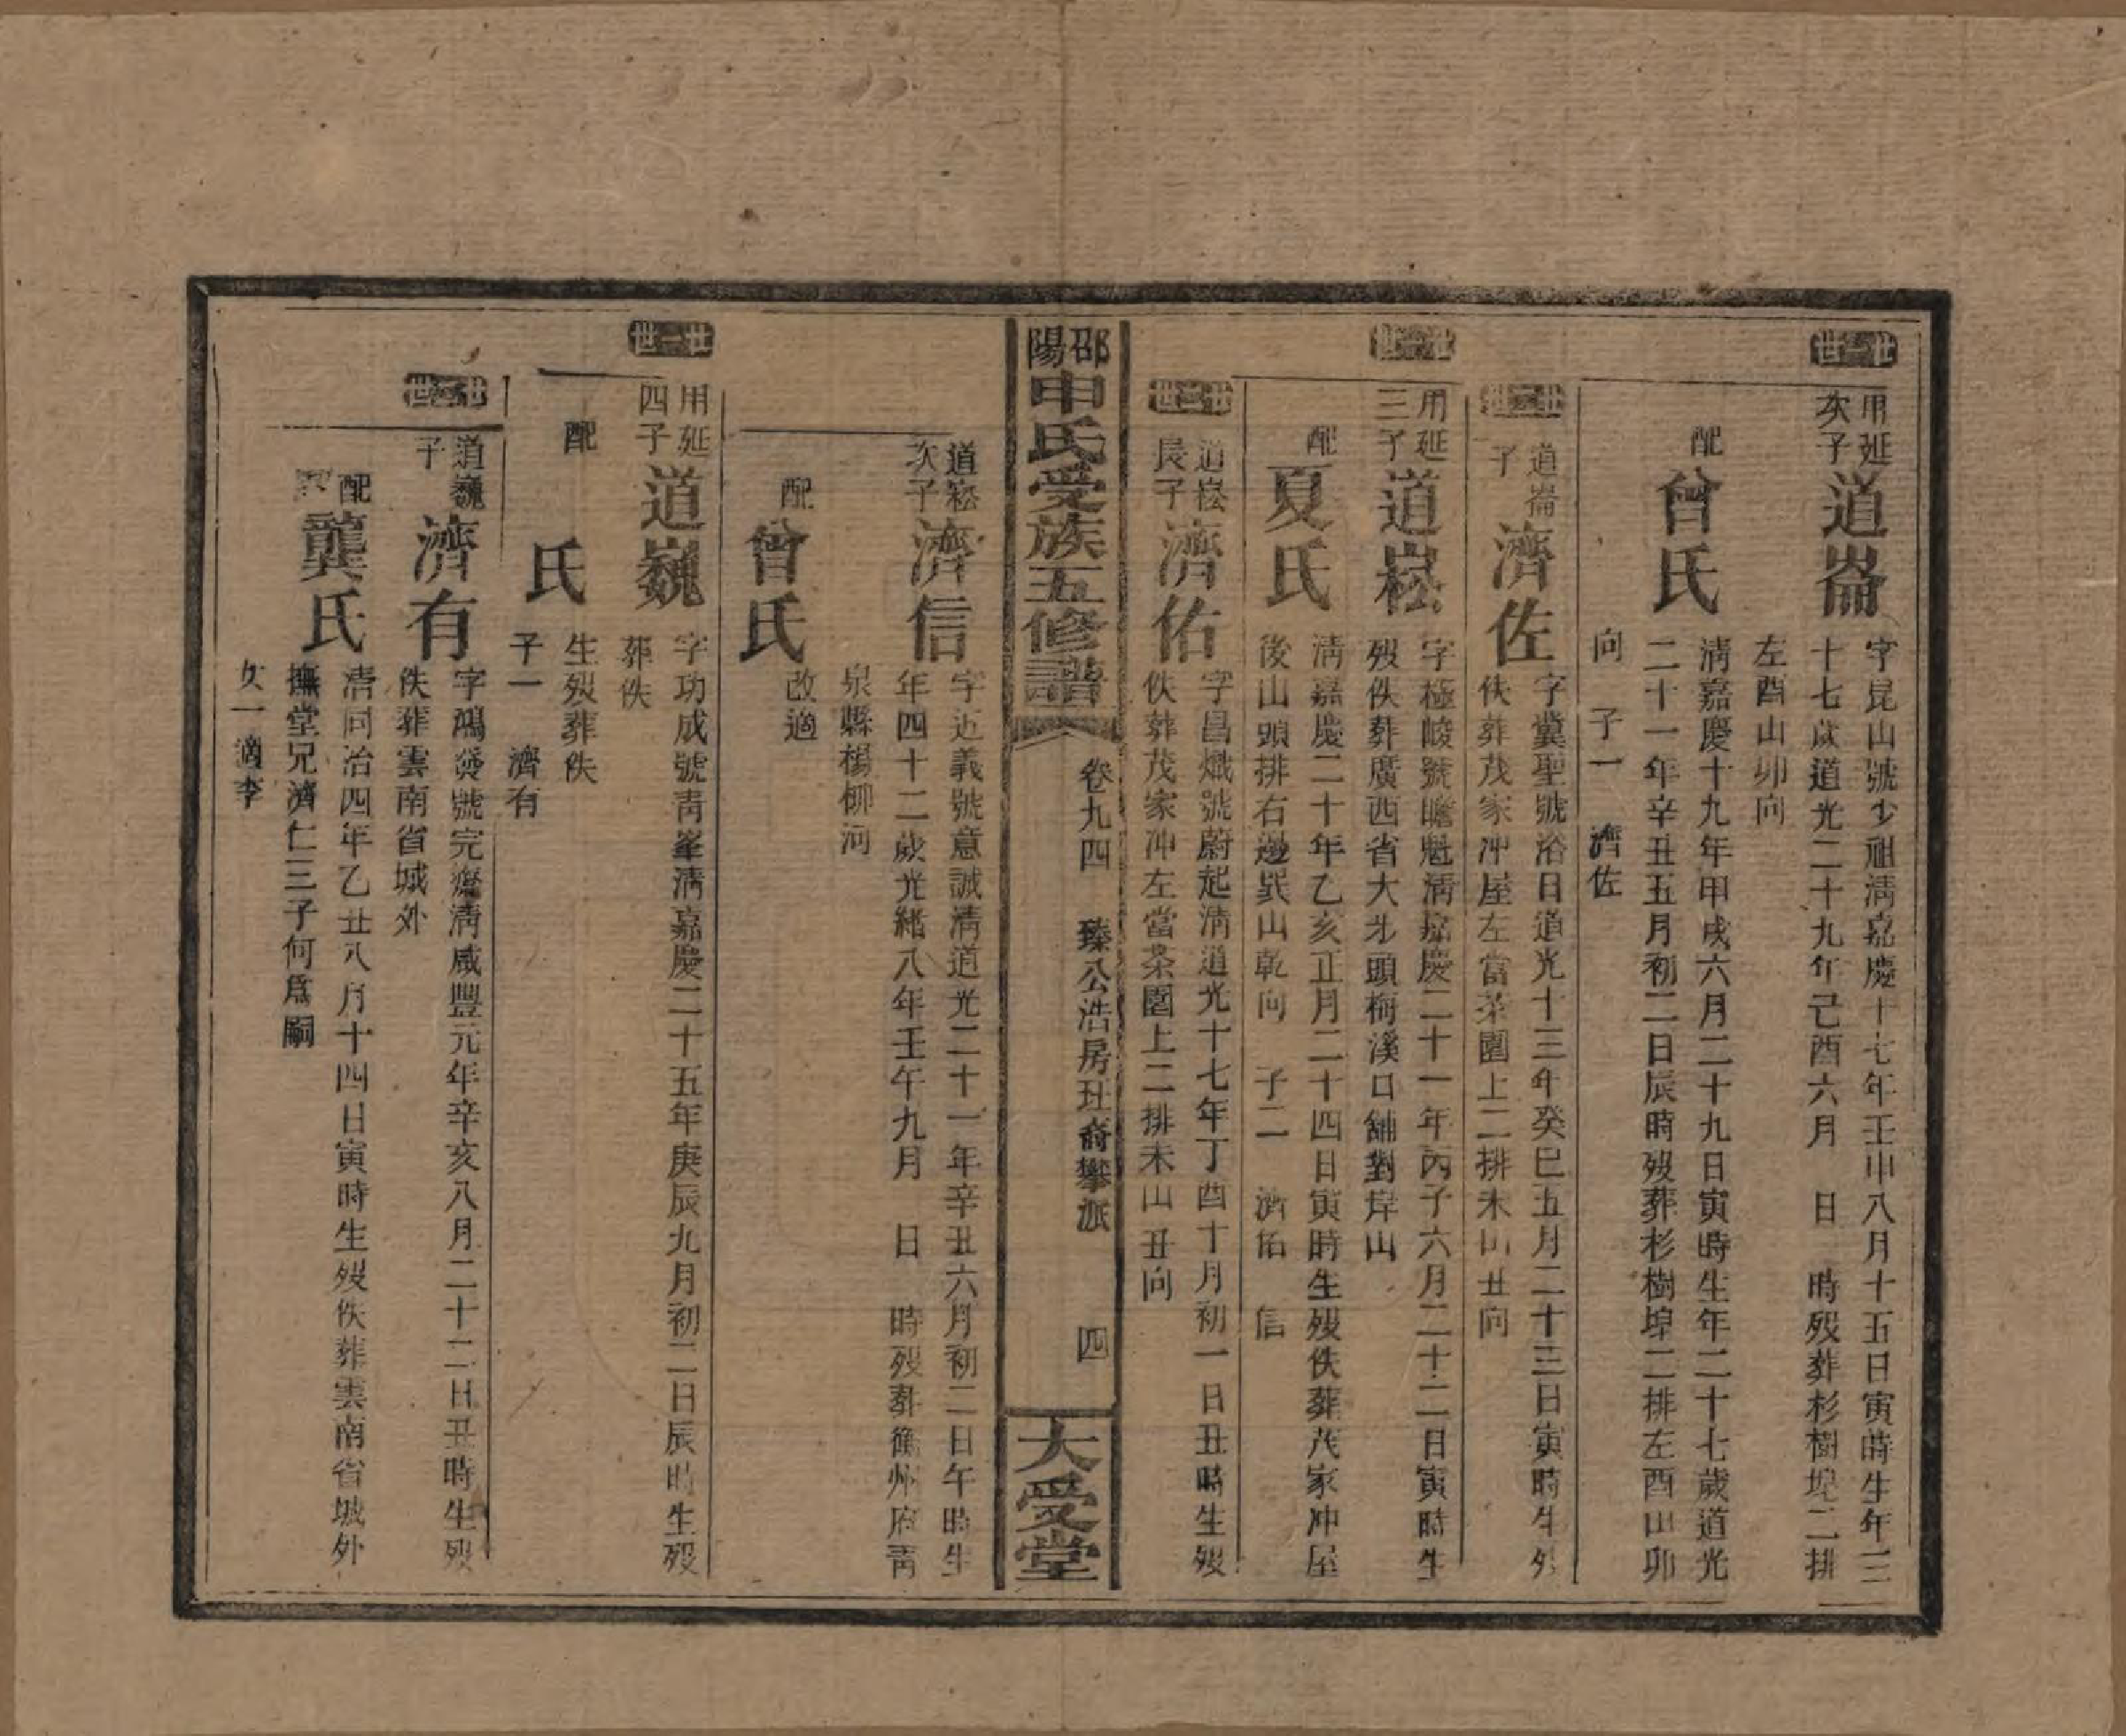 廿二世
用延
次子
道崙
字昆山號少祖淸嘉慶十七年壬申八月十五日寅時生年三
十七歲道光二十九年己酉六月　日　時歿葬杉樹埠二排
左酉山卯向
配
曾氏
淸嘉慶十九年甲戌六月二十九日寅時生年二十七歲道光
二十一年辛丑五月初二日辰時歿葬杉樹埠二排左酉山卯
向　子一　濟佐
廿三世
道崙
子
濟佐
字冀聖號浴日道光十三年癸巳五月二十三日寅時生歿
佚葬茂家冲屋左當茶園上二排未山丑向
廿二世
用延
三子
道崧
字極峻號瞻魁淸嘉慶二十一年丙子六月二十二日寅時生
歿佚葬廣西省大木頭梅溪口舖對岸山
配
夏氏
淸嘉慶二十年乙亥正月二十四日寅時生歿佚葬茂家冲屋
後山頭排右邊巽山乾向　子二　濟佑　信
廿三世
道崧
長子
濟佑
字昌熾號蔚起淸道光十七年丁酉十月初一日丑時生歿
佚葬茂家冲左當茶園上二排未山丑向
邵陽申氏受族五修譜
卷九四　臻公浩房玨裔攀派　四
大受堂
道崧
次子
濟信
字近義號意誠淸道光二十一年辛丑六月初二日午時生
年四十二歲光緒八年壬午九月　日　時歿葬徽州府靑
泉縣楊柳河
配
曾氏
改適
廿二世
用延
四子
道巍
字功成號靑峯淸嘉慶二十五年庚辰九月初二日辰時生歿
葬佚
配
氏
生歿葬佚
子一　濟有
廿三世
道巍
子
濟有
字鴻發號完齋淸咸豐元年辛亥八月二十二日丑時生歿
佚葬雲南省城外
配
龔氏
淸同治四年乙丑八月十四日寅時生歿佚葬雲南省城外
撫堂兄濟仁三子何爲嗣
女一適李